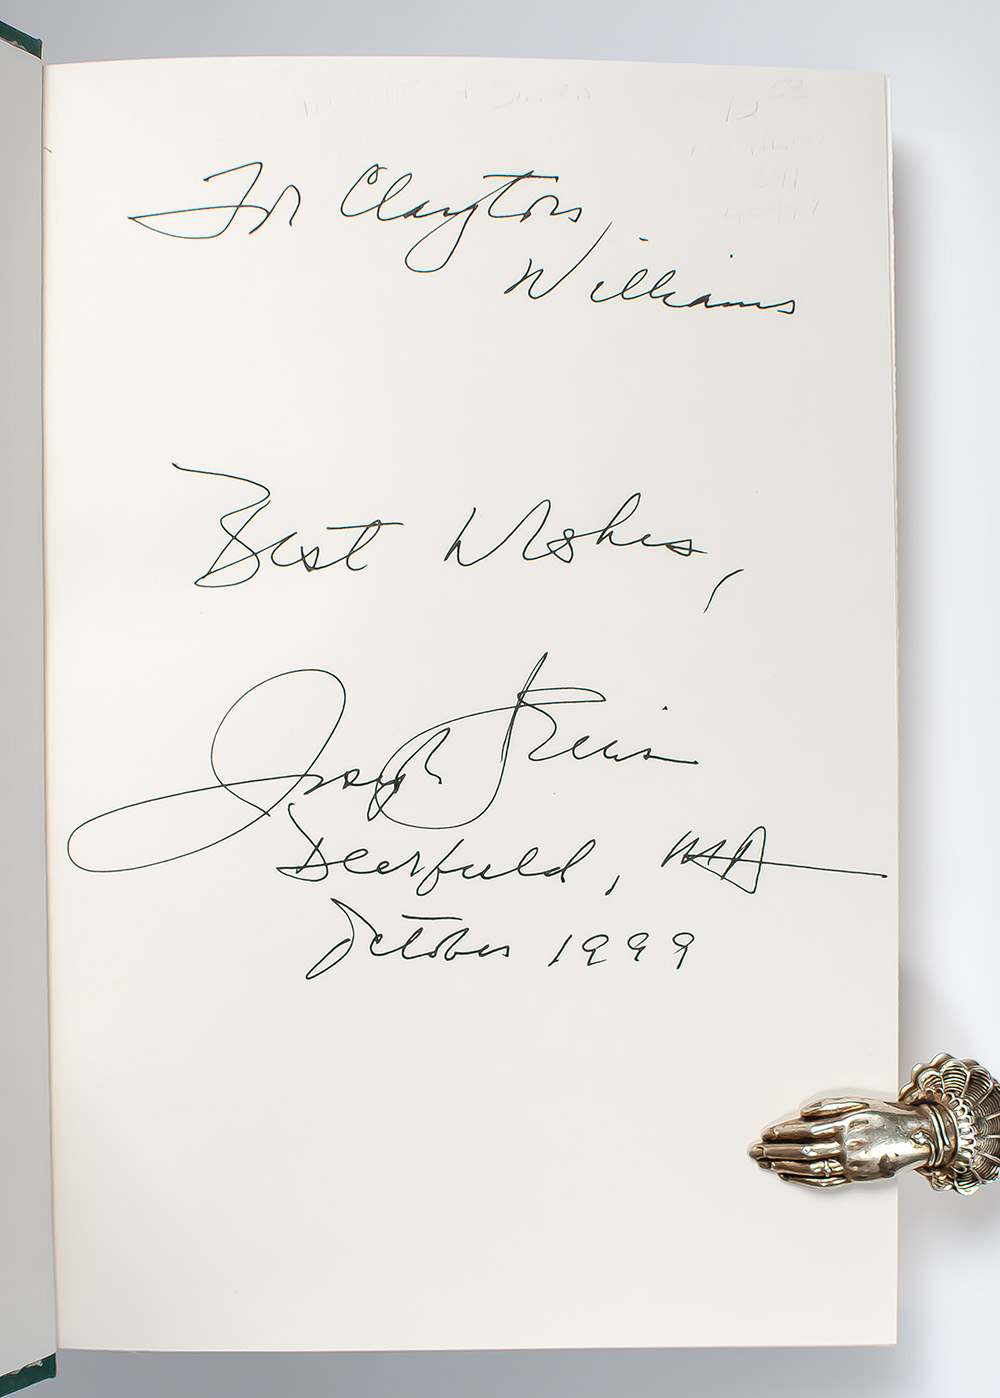 For Clayton
Williams
Best Wishes,
Joseph
Deerfield, MA
October 1999